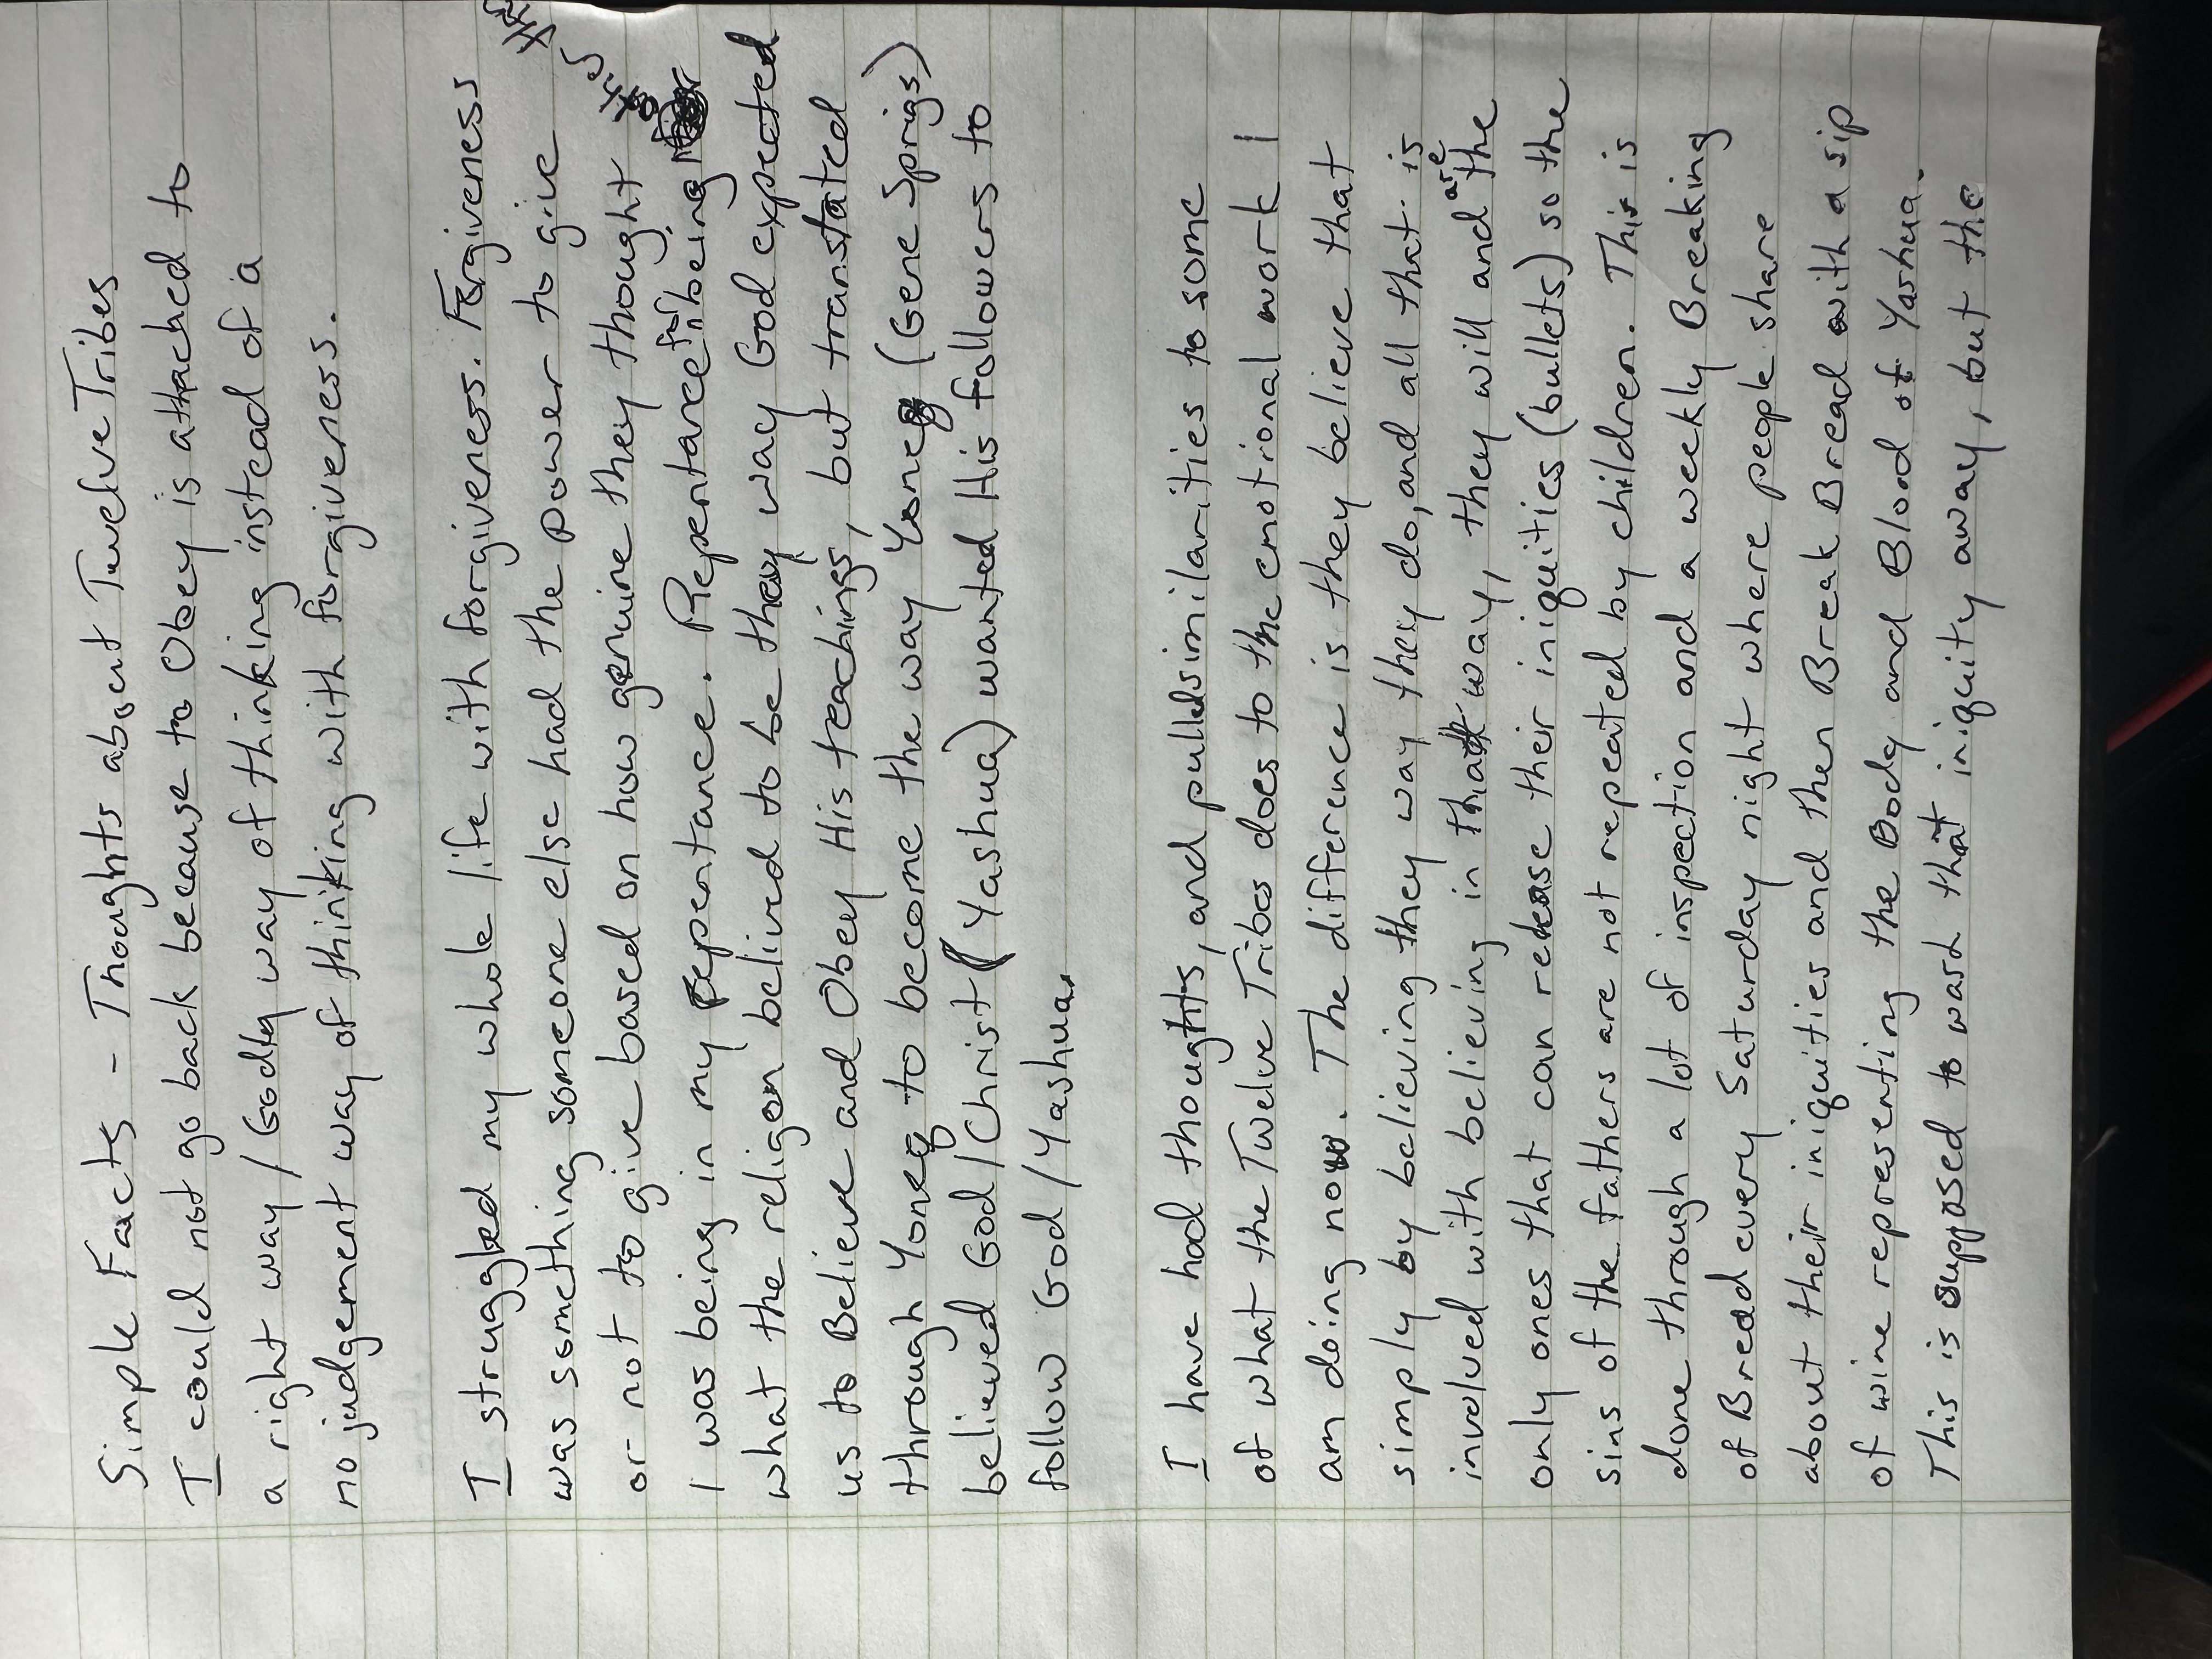 Simple Facts - Thoughts about Twelve Tribes
I could not go back because to Obey is attached to
a right way / Godly way of thinking instead of a
no judgement way of thinking with forgiveness.
I struggled my whole life with forgiveness. Forgiveness
was something someone else had the power to give
or not to give based on how genuine they thought
I was being in my repentance. Repentance for being
what the religon belived to be they way God expected
us to Believe and Obey His teachings, but transtated
through Yoneq to become the way Yoneq (Gene Sprigs)
believed God / Christ (Yashua) wanted His followers to
follow God / Yashua.
I have had thoughts, and pulled similarities to some
of what the Twelve Tribes does to the emotional work I
am doing now. The difference is they believe that
simply by believing they way they do, and all that is
involved with believing in that way, they will and are the
only ones that can release their iniquities (bullets) so the
sins of the fathers are not repeated by children. This is
done through a lot of inspection and a weekly Breaking
of Bread every Saturday night where people share
about their iniquities and then Break Bread with a sip
of wine representing the Body and Blood of Yashua.
This is supposed to wash that iniquity away, but the